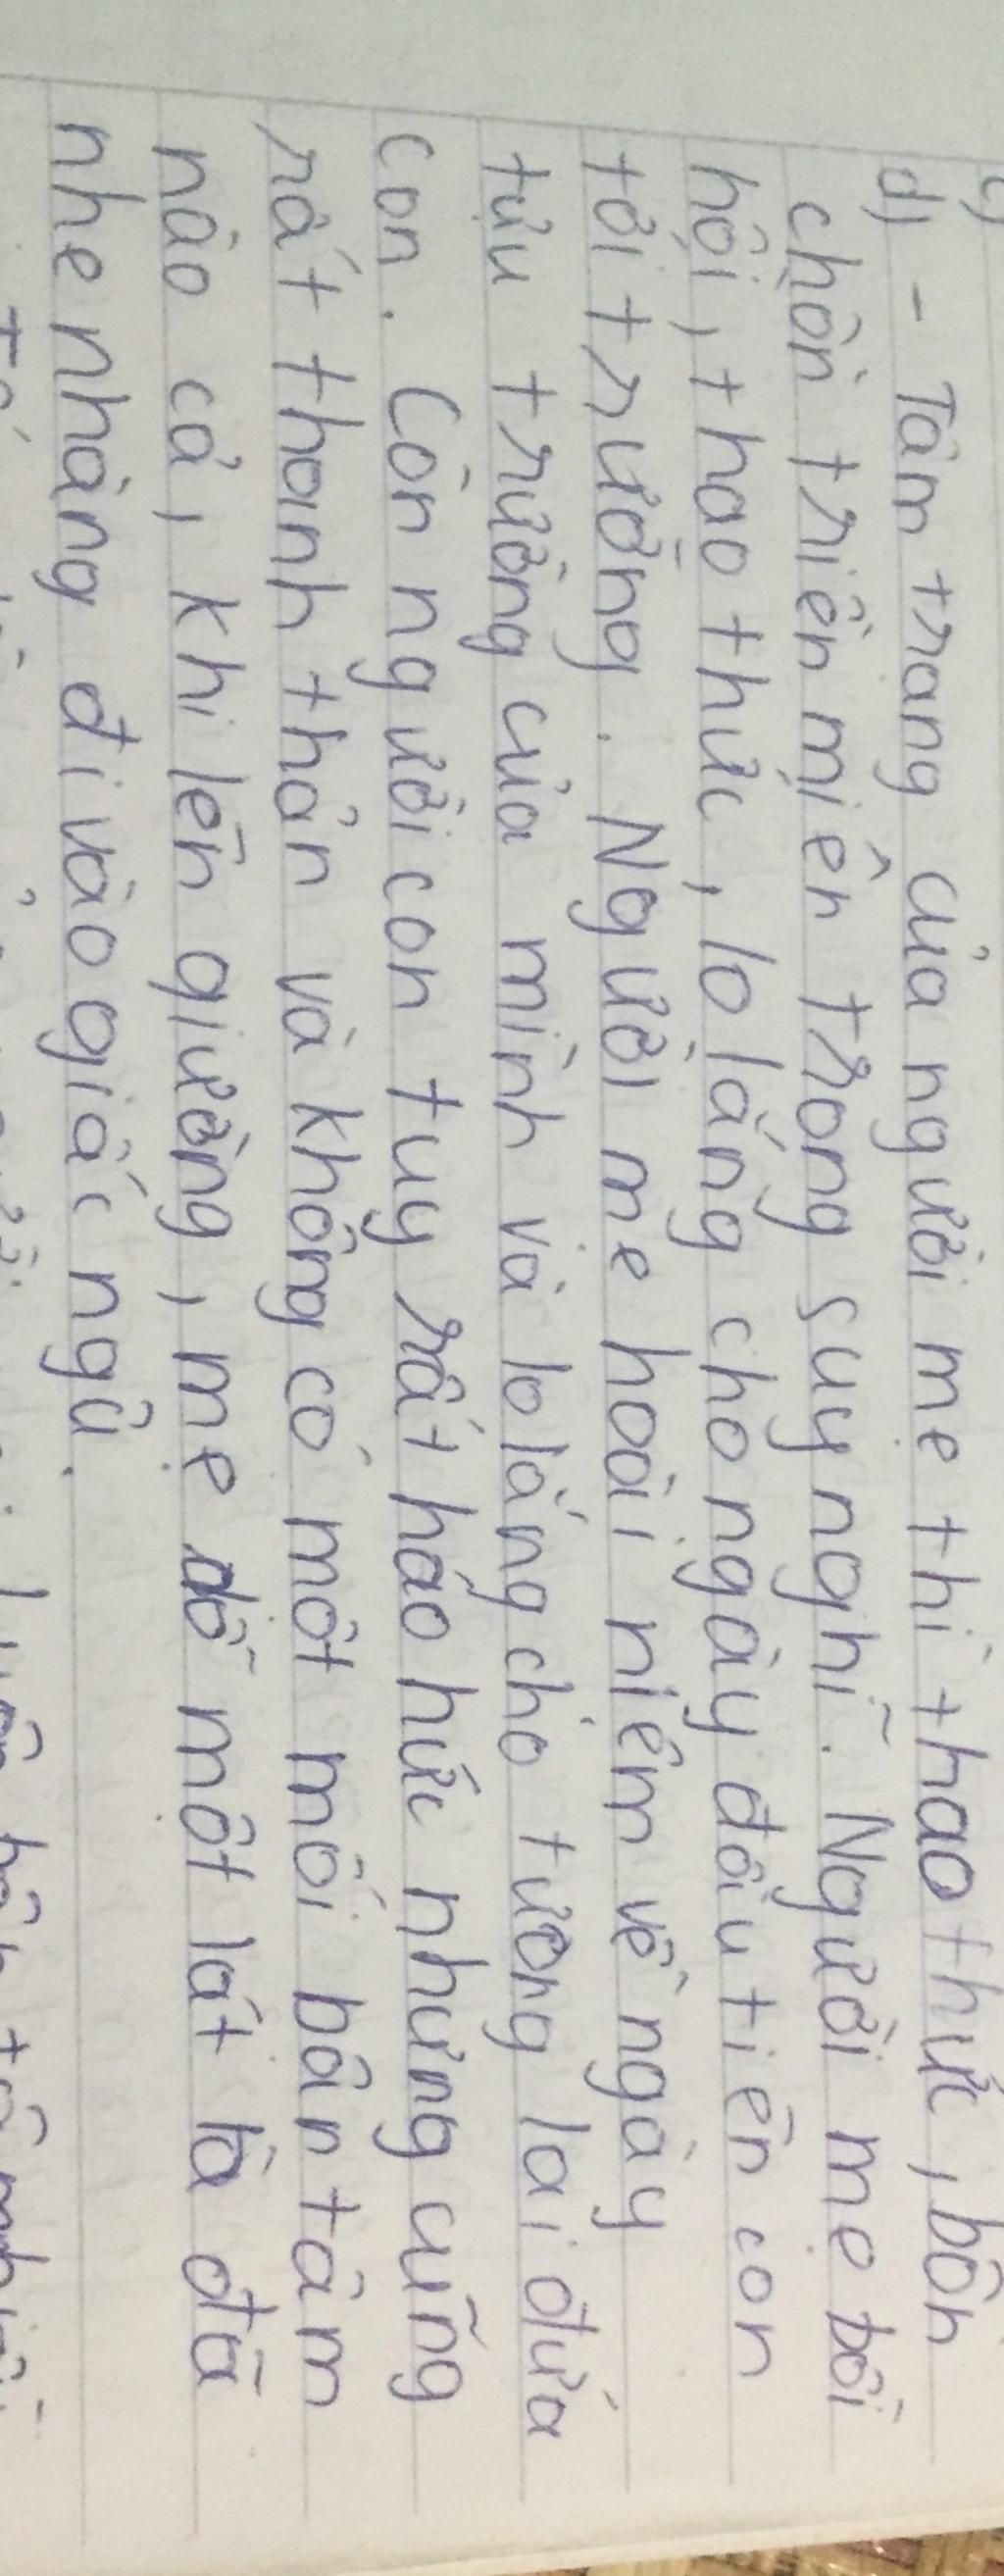 c)
d) - Tâm trạng của người mẹ thì thao thức, bồn
chồn triền miên trong suy nghĩ. Người mẹ bồi
hồi, thao thức, lo lắng cho ngày đầu tiên con
tới trường. Người mẹ hoài niệm về ngày
tựu trường của mình và lo lắng cho tương lai đứa
con. Còn người con tuy rất háo hức nhưng cũng
rất thanh thản và không có một mối bận tâm
nào cả, khi lên giường, mẹ dỗ một lát là đã
nhẹ nhàng đi vào giấc ngủ.